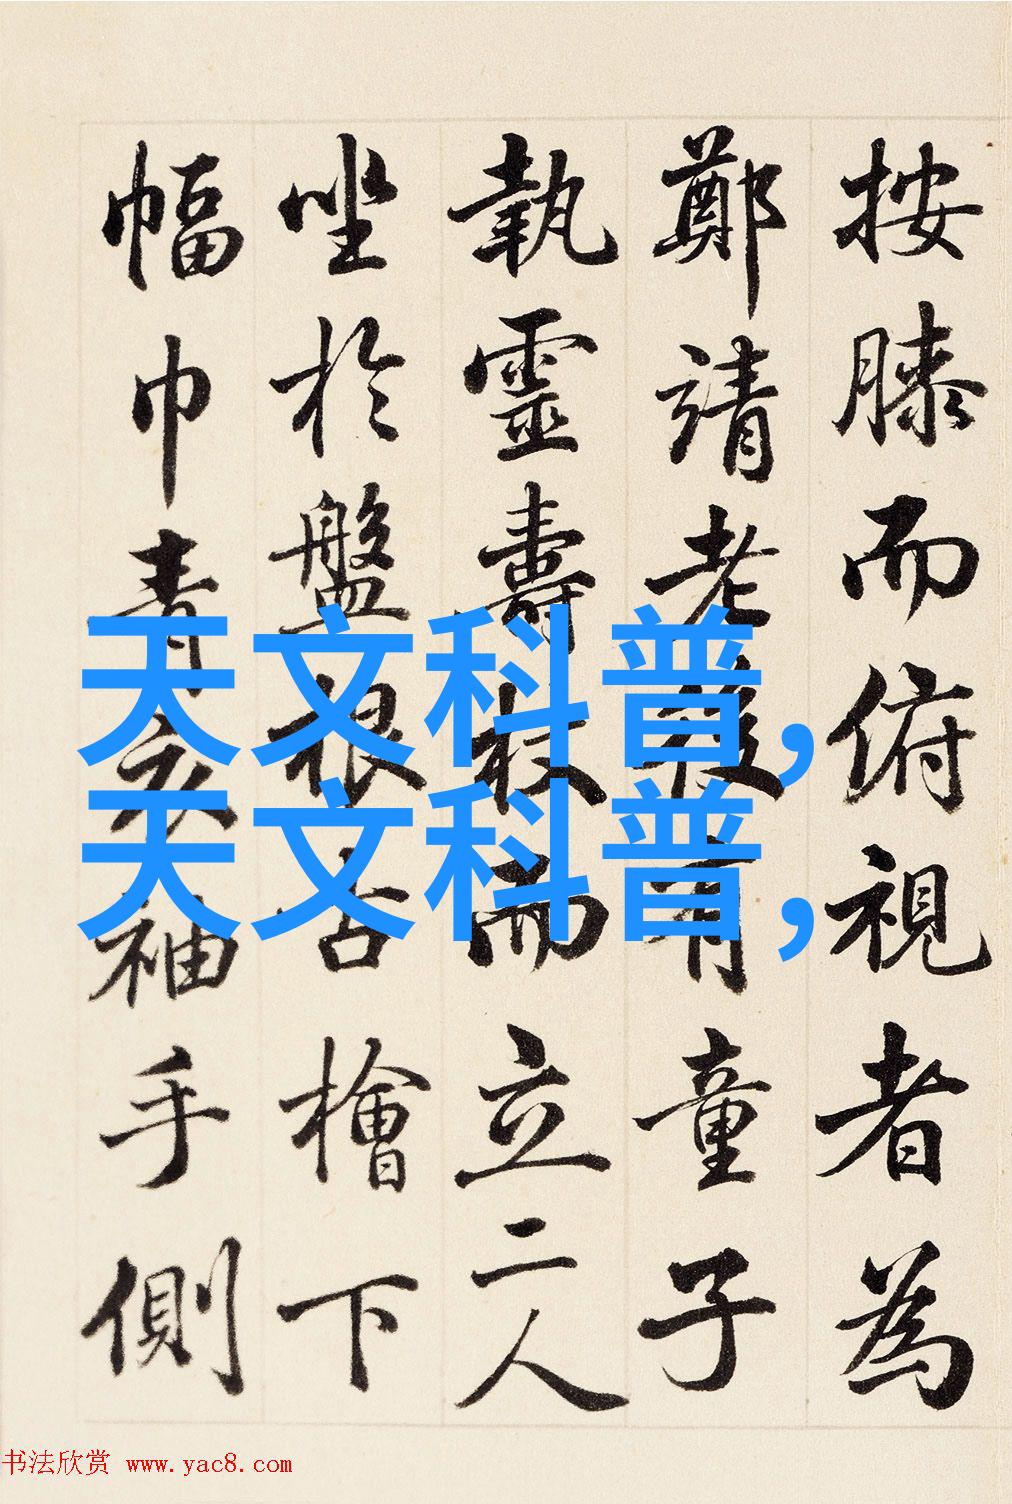 按膝而俯視者為
鄭靖老後有童子
執靈壽杖而立二人
坐於盤根古檜下
幅巾青衣袖手側
天文科普,
天文科普,
书法欣赏 www.yac8.com